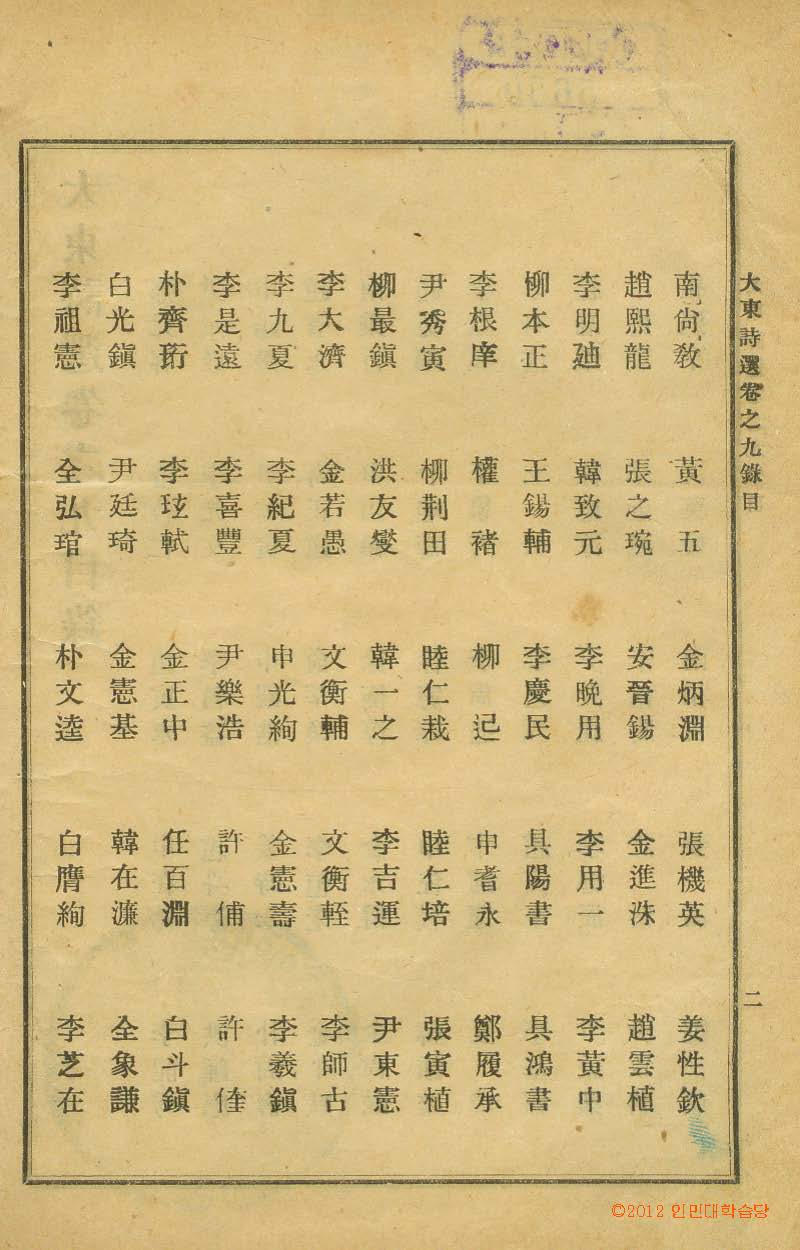 大東詩選卷之九錄目
二
南尙敎 黃五 金炳淵 張機英 姜性欽
趙熙龍 張之琬 安晉錫 金進洙 趙雲植
李明迪 韓致元 李晩用 李用一 李黃中
柳本正 王錫輔 李慶民 具陽書 具鴻書
李根庠 權褚 柳迅 申耆永 鄭履承
尹秀寅 柳荆田 睦仁栽 睦仁培 張寅植
柳最鎭 洪友燮 韓一之 李吉運 尹東憲
李大濟 金若愚 文衡輔 文衡輊 李師古
李九夏 李紀夏 申光絢 金憲壽 李羲鎭
李是遠 李喜豐 尹樂浩 許俌 許𠍁
朴齊珩 李玹軾 金正中 任百淵 白斗鎭
白光鎭 尹廷琦 金憲基 韓在濂 全象謙
李祖憲 全弘琯 朴文逵 白膺絢 李芝在
©2012 인민대학습당